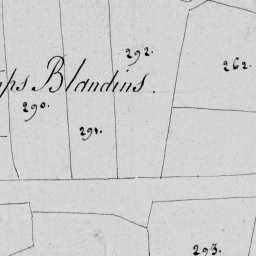 292.
262.
ps Blandins.
290.
291.
293.